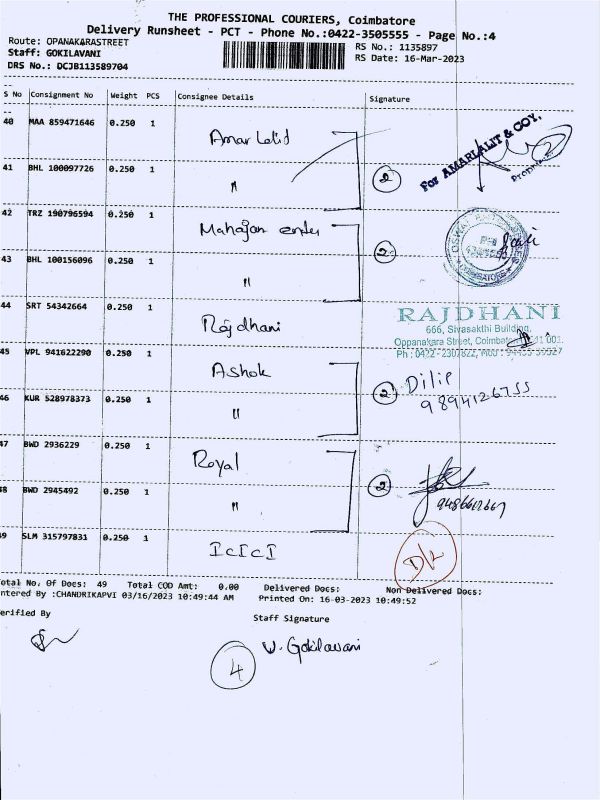 THE PROFESSIONAL COURIERS, Coimbatore
Delivery Runsheet - PCT - Phone No.:0422-3505555 - Page No.:4
Route: OPANAKARASTREET
Staff: GOKILAVANI
DRS No.: DCJB113589704
RS No.: 1135897
RS Date: 16-Mar-2023
S No Consignment No Weight PCS Consignee Details Signature
40 MAA 859471646 0.250 1 Amar Lalid
For AMARLALIT & COY,
41 BHL 100097726 0.250 1 "
2
42 TRZ 190796594 0.250 1 Mahajan enter
2
43 BHL 100156096 0.250 1 "
COIMBATORE
44 SRT 54342664 Rajdhani
RAJDHANI
666, Sivasakthi Building,
Oppanakara Street, 001.
45 VPL 941622290 0.250 1 Ashok
2 Dilip
9894126755
46 KUR 528978373 0.250 1 "
47 BWD 2936229 0.250 1 Royal
2
48 BWD 2945492 0.250 1 "
49 SLM 315797831 0.250 1 ICICI
D/L
Total No. Of Docs: 49 Total COD Amt: 0.00 Delivered Docs: Non Delivered Docs:
ntered By :CHANDRIKAPVI 03/16/2023 10:49:44 AM Printed On: 16-03-2023 10:49:52
erified By
Staff Signature
V. Gokilavani
4